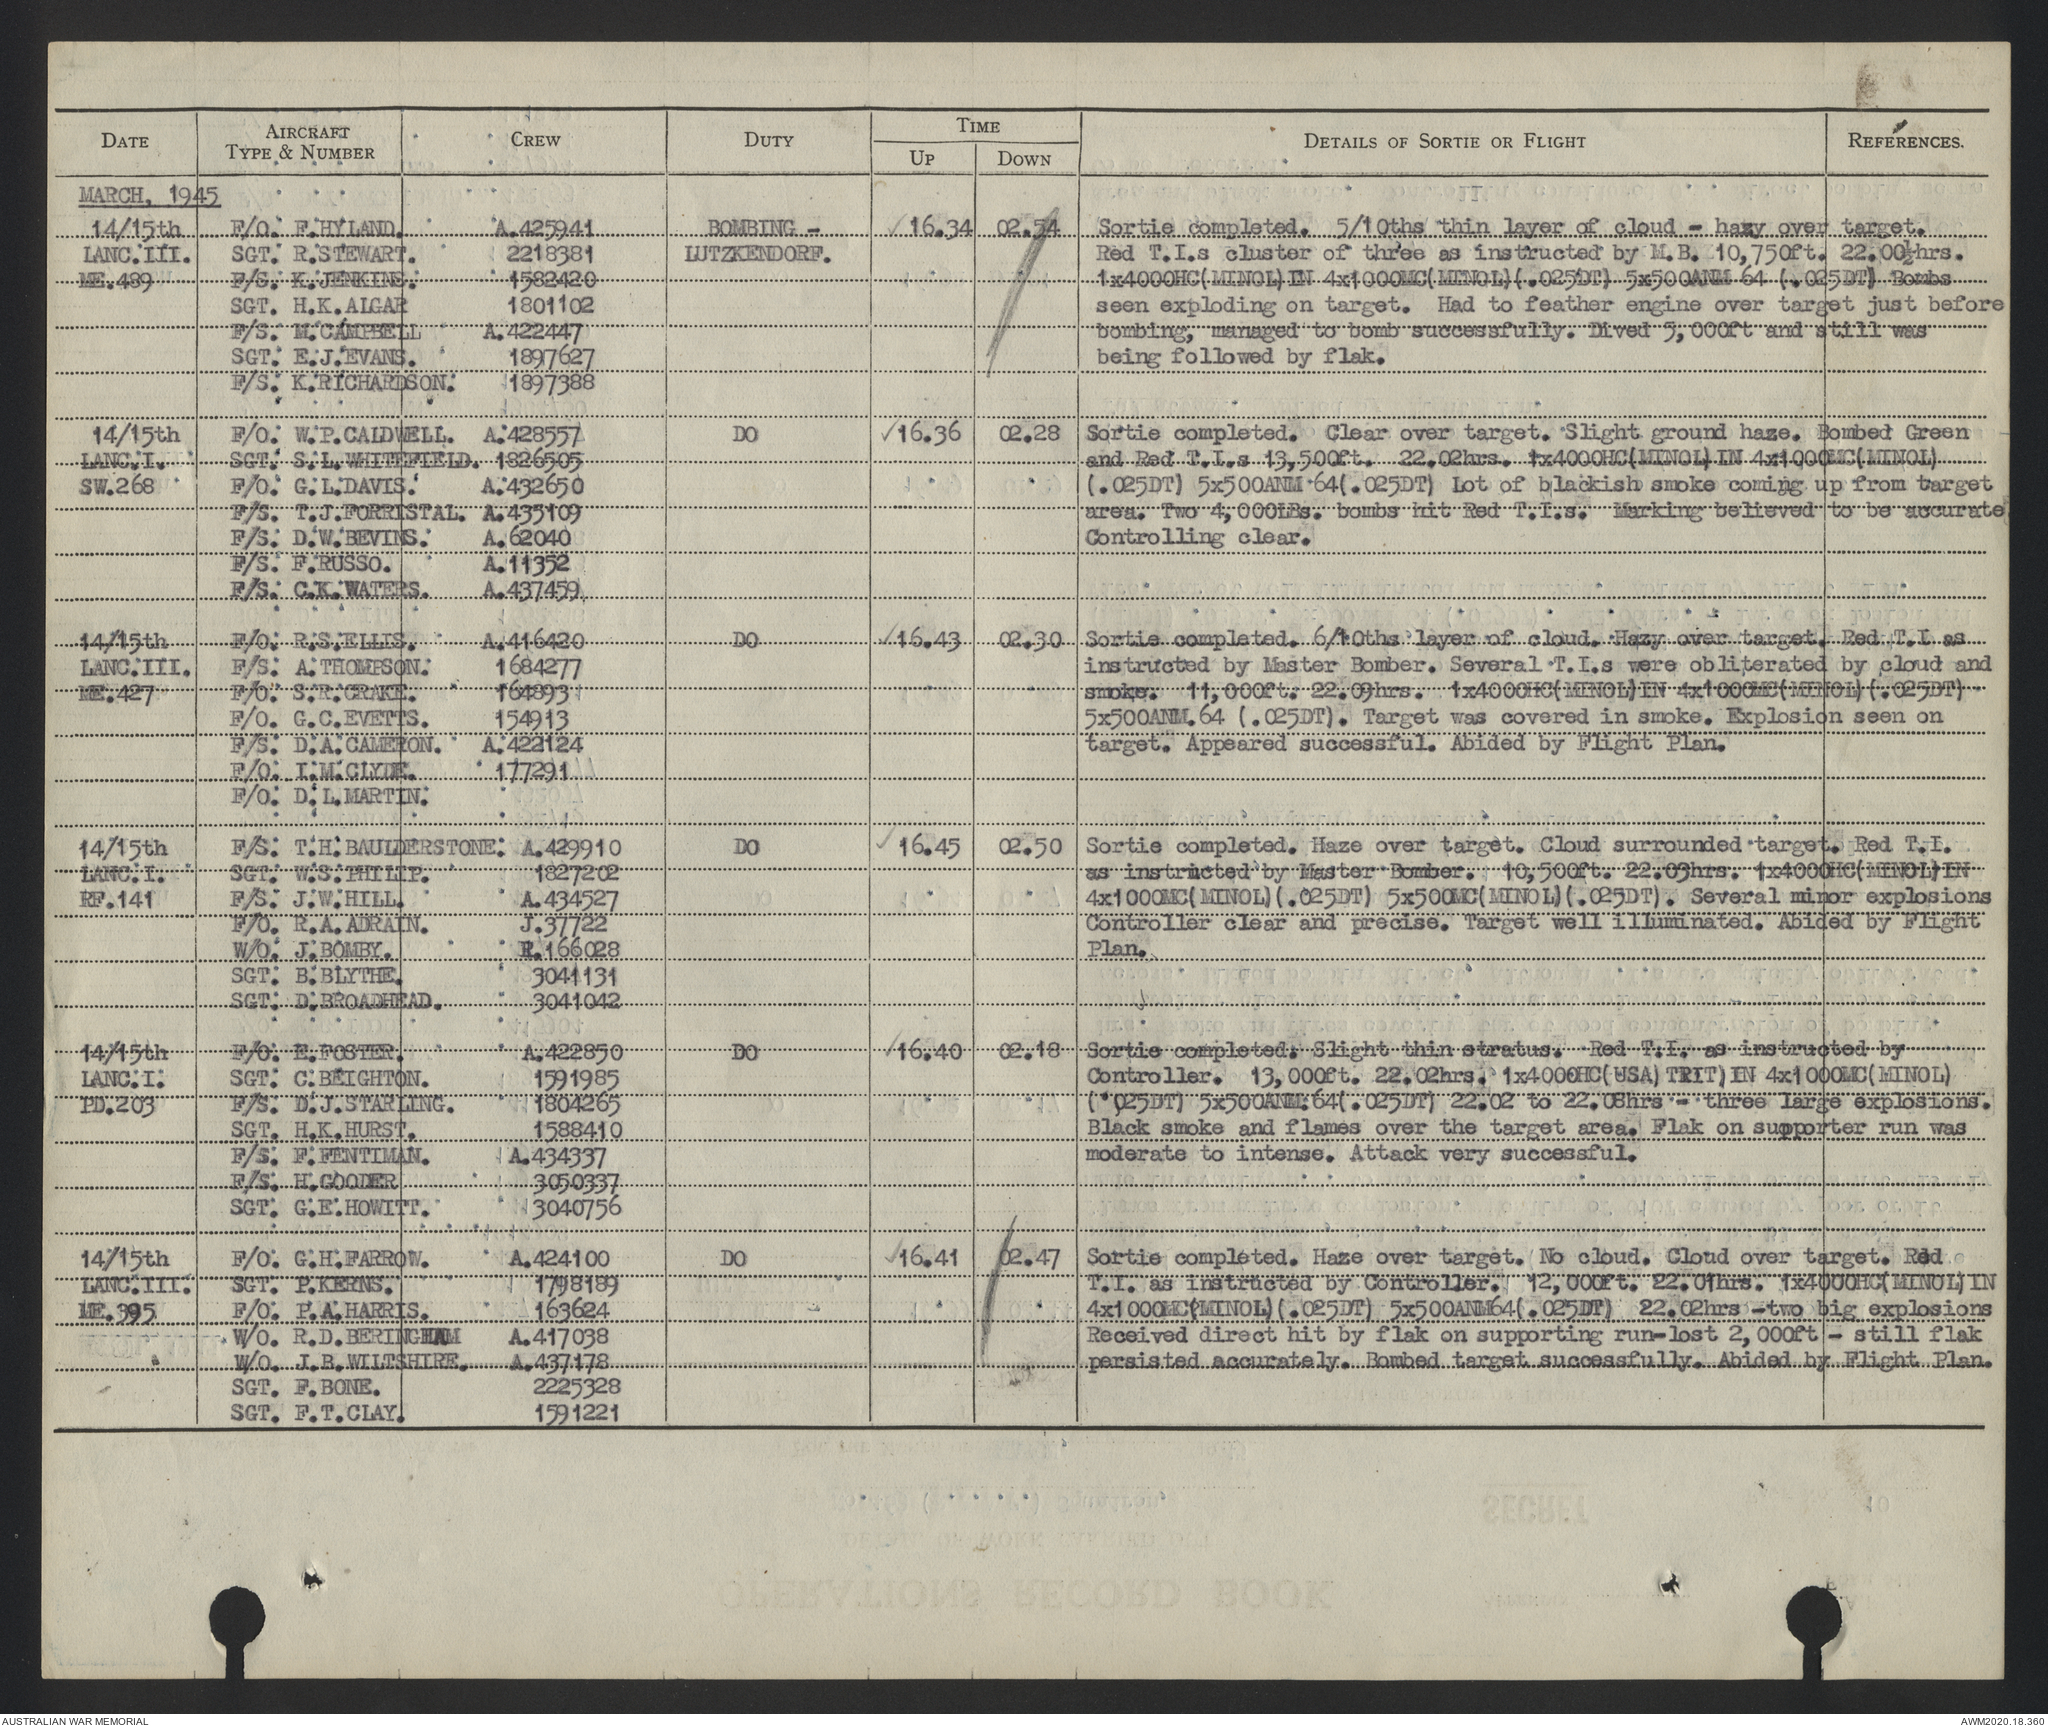 DATE AIRCRAFT TYPE & NUMBER CREW DUTY TIME UP DOWN DETAILS OF SORTIE OR FLIGHT REFERENCES.
MARCH, 1945
14/15th F/O. F.HYLAND. A.425941 BOMBING - 16.34 02.54 Sortie completed. 5/10ths thin layer of cloud - hazy over target.
LANC.III. SGT. R.STEWART. 2218381 LUTZKENDORF. Red T.I.s cluster of three as instructed by M.B. 10,750ft. 22.00½hrs.
ME.489 F/S. K.JENKINS. 1582420 1x4000HC(MINOL)IN 4x1000MC(MINOL)(.025DT) 5x500ANM 64 (.025DT) Bombs
SGT. H.K.ALGAR 1801102 seen exploding on target. Had to feather engine over target just before
F/S. M.CAMPBELL A.422447 bombing, managed to bomb successfully. Dived 5,000ft and still was
SGT. E.J.EVANS. 1897627 being followed by flak.
F/S. K.RICHARDSON. 1897388
14/15th F/O. W.P.CALDWELL. A.428557 DO 16.36 02.28 Sortie completed. Clear over target. Slight ground haze. Bombed Green
LANC.I. SGT. S.L.WHITEFIELD. 1826505 and Red T.I.s 13,500ft. 22.02hrs. 1x4000HC(MINOL)IN 4x1000MC(MINOL)
SW.268 F/O. G.L.DAVIS. A.432650 (.025DT) 5x500ANM 64(.025DT) Lot of blackish smoke coming up from target
F/S. T.J.FORRISTAL. A.435109 area. Two 4,000LBs. bombs hit Red T.I.s. Marking believed to be accurate
F/S. D.W.BEVINS. A.62040 Controlling clear.
F/S. F.RUSSO. A.11352
F/S. C.K.WATERS. A.437459
14/15th F/O. R.S.ELLIS. A.416420 DO 16.43 02.30 Sortie completed. 6/10ths layer of cloud. Hazy over target. Red T.I. as
LANC.III. F/S. A.THOMPSON. 1684277 instructed by Master Bomber. Several T.I.s were obliterated by cloud and
ME.427 F/O. S.R.CRAKE. 164893 smoke. 11,000ft. 22.09hrs. 1x4000HC(MINOL)IN 4x1000MC(MINOL)(.025DT)
F/O. G.C.EVETTS. 154913 5x500ANM.64 (.025DT). Target was covered in smoke. Explosion seen on
F/S. D.A.CAMERON. A.422124 target. Appeared successful. Abided by Flight Plan.
F/O. I.M.CLYDE. 177291
F/O. D.L.MARTIN.
14/15th F/S. T.H.BAULDERSTONE. A.429910 DO 16.45 02.50 Sortie completed. Haze over target. Cloud surrounded target. Red T.I.
LANC.I. SGT. W.S.PHILIP. 1827202 as instructed by Master Bomber. 10,500ft. 22.03hrs. 1x4000HC(MINOL)IN
RF.141 F/S. J.W.HILL. A.434527 4x1000MC(MINOL)(.025DT) 5x500MC(MINOL)(.025DT). Several minor explosions
F/O. R.A.ADRAIN. J.37722 Controller clear and precise. Target well illuminated. Abided by Flight
W/O. J.BOMBY. R.166028 Plan.
SGT. B.BLYTHE. 3041131
SGT. D.BROADHEAD. 3041042
14/15th F/O. E.FOSTER. A.422850 DO 16.40 02.18 Sortie completed. Slight thin stratus. Red T.I. as instructed by
LANC.I. SGT. C.BEIGHTON. 1591985 Controller. 13,000ft. 22.02hrs. 1x4000HC(USA)TRIT)IN 4x1000MC(MINOL)
PD.203 F/S. D.J.STARLING. 1804265 (.025DT) 5x500ANM.64(.025DT) 22.02 to 22.08hrs - three large explosions.
SGT. H.K.HURST. 1588410 Black smoke and flames over the target area. Flak on supporter run was
F/S. F.FENTIMAN. A.434337 moderate to intense. Attack very successful.
F/S. H.GOODER 3050337
SGT. G.E.HOWITT. 3040756
14/15th F/O. G.H.FARROW. A.424100 DO 16.41 02.47 Sortie completed. Haze over target. No cloud. Cloud over target. Red
LANC.III. SGT. P.KERNS. 1798189 T.I. as instructed by Controller. 12,000ft. 22.01hrs. 1x4000HC(MINOL)IN
ME.395 F/O. P.A.HARRIS. 163624 4x1000MC(MINOL)(.025DT) 5x500ANM64(.025DT) 22.02hrs -two big explosions
W/O. R.D.BERINGHAM A.417038 Received direct hit by flak on supporting run-lost 2,000ft - still flak
W/O. J.B.WILTSHIRE. A.437178 persisted accurately. Bombed target successfully. Abided by Flight Plan.
SGT. F.BONE. 2225328
SGT. F.T.CLAY. 1591221
AUSTRALIAN WAR MEMORIAL AWM2020.18.360